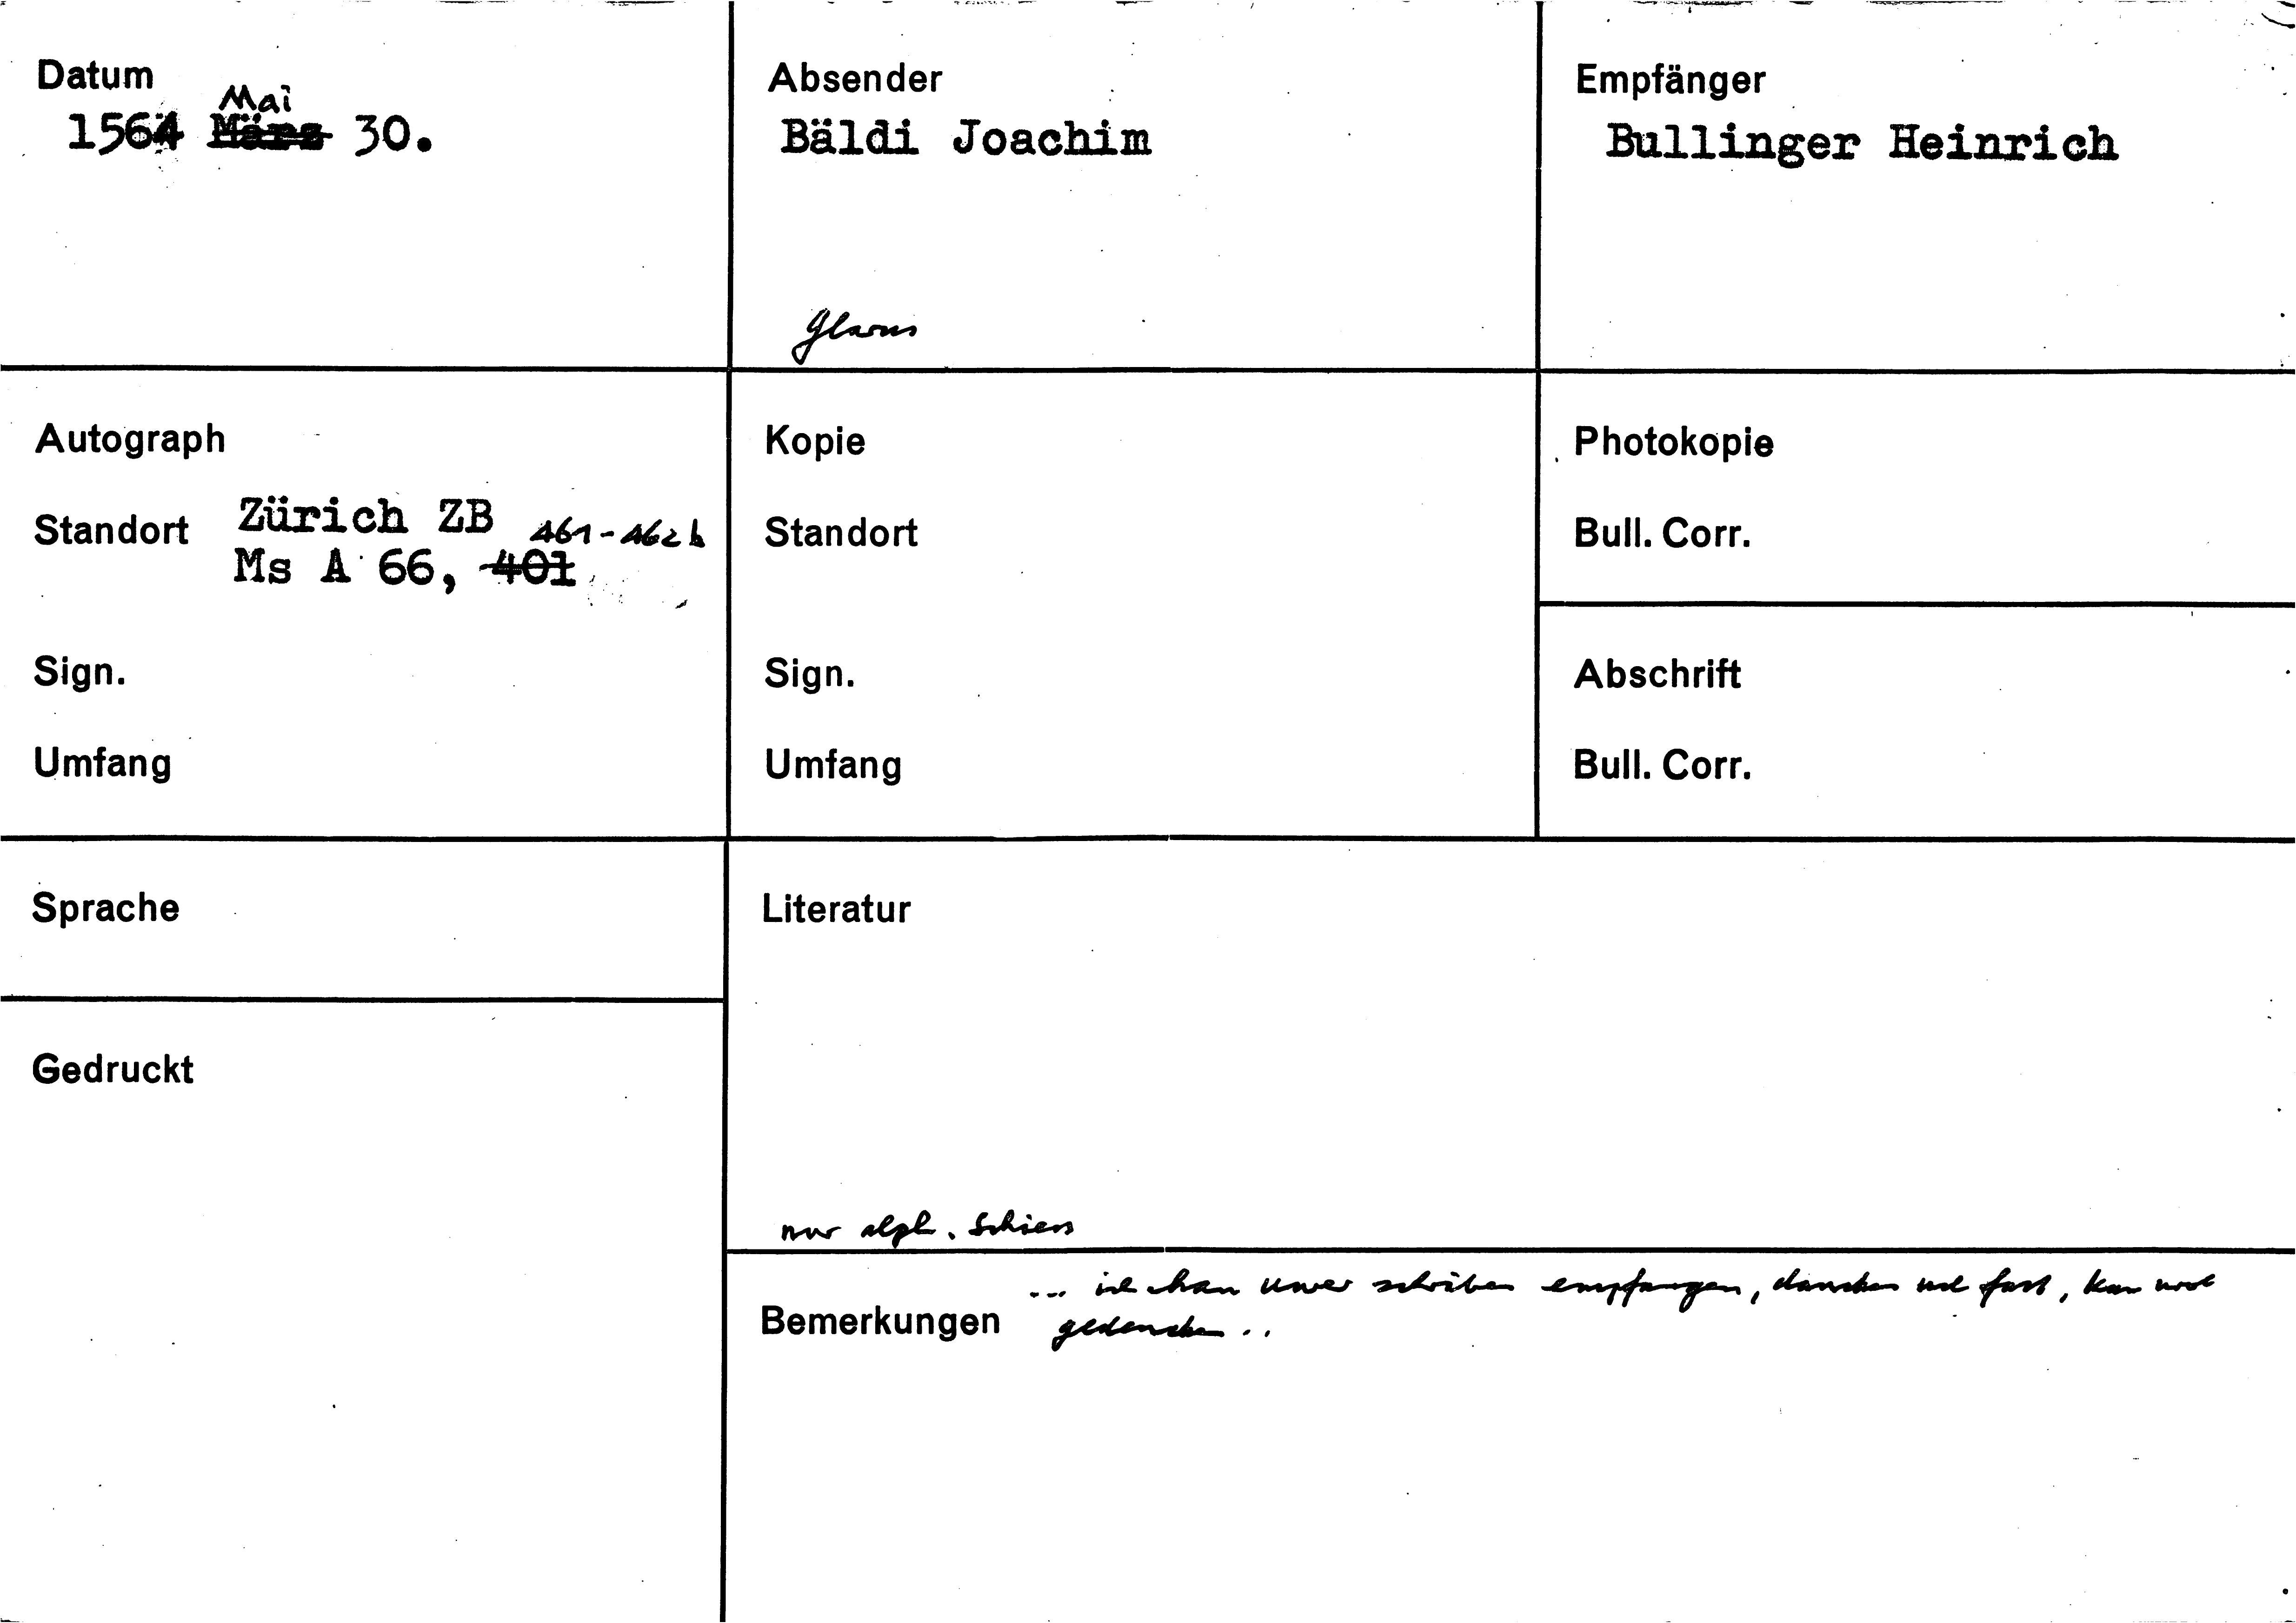 Datum
Mai
1564 März 30.
Absender
Bäldi Joachim
Glarus
Empfänger
Bullinger Heinrich
Autograph
Standort Zürich ZB 461-462b
Ms A 66, 401
Sign.
Umfang
Kopie
Standort
Sign.
Umfang
Photokopie
Bull. Corr.
Abschrift
Bull. Corr.
Sprache
Gedruckt
Literatur
nur alph. Schiess
Bemerkungen
... ich han uwer schriben empfangen, dancken fast, kan wol
gedencken ..